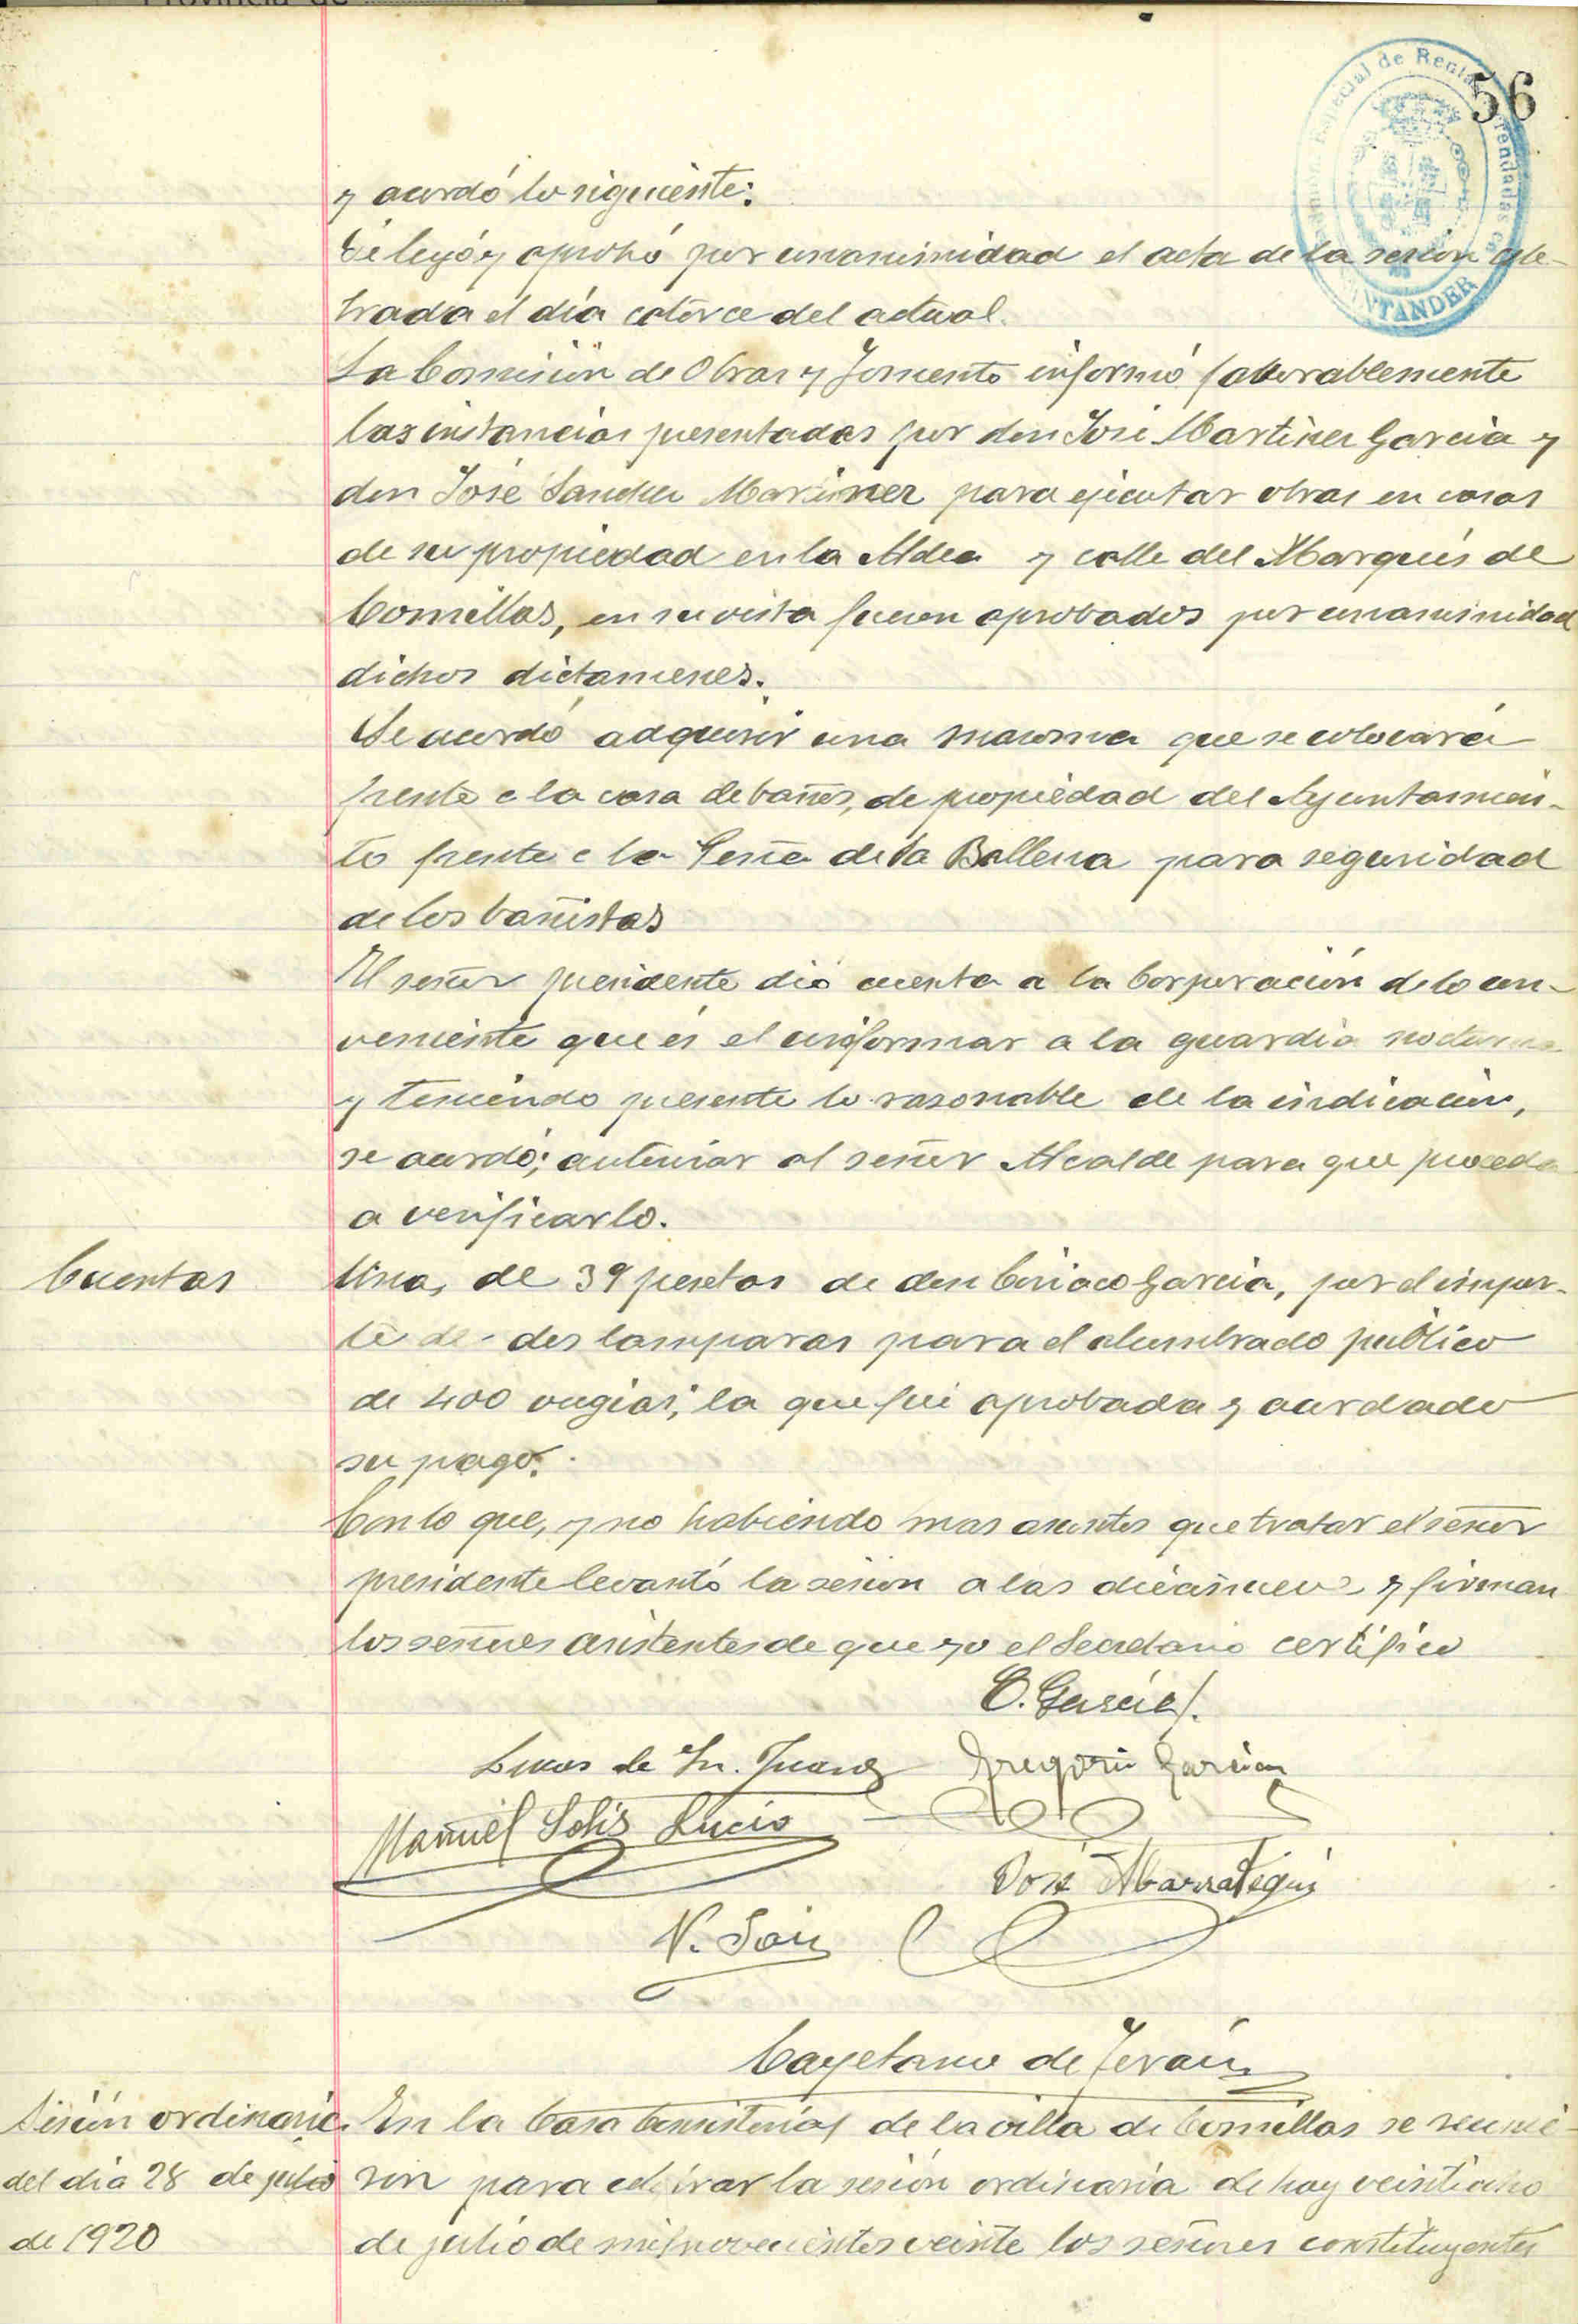 Provincia de
56
Especial de Rentas Arrendadas
SANTANDER
y acordó lo siguiente:
Se leyó y aprobó por unanimidad el acta de la sesión cele-
brada el día catorce del actual.
La Comisión de Obras y Fomento informó favorablemente
las instancias presentadas por don José Martinez Garcia y
don José Sanchez Martinez para ejecutar obras en casas
de su propiedad en la Aldea y calle del Marqués de
Comillas, en su vista fueron aprobados por unanimidad
dichos dictamenes.
Se acordó adquirir una maroma que se colocará
frente a la casa de baños, de propiedad del Ayuntamien-
to frente a la Peña de la Ballena para seguridad
de los bañistas
El señor presidente dió cuenta a la Corporación de lo con-
veniente que es el uniformar a la guardia nocturna
y teniendo presente lo razonable de la indicación,
se acordó; autorizar al señor Alcalde para que proceda
a verificarlo.
Cuentas
Una, de 39 pesetas de don Ciriaco Garcia, por el impor-
te de dos lamparas para el alumbrado publico
de 400 bugias; la que fué aprobada y acordado
su pago.
Con lo que, y no habiendo mas asuntos que tratar el señor
presidente levantó la sesión a las diecinueve y firman
los señores asistentes de que yo el Secretario certifico
C. Garcia
Lucas de Sn. Juan Gregorio Garcia
Manuel Solis Lucio
José Marrategui
N. Saiz
Cayetano de Terán
Sesión ordinaria
del dia 28 de julio
de 1920
En la Casa Consistorial de la villa de Comillas se reunie-
ron para celebrar la sesión ordinaria de hoy veintiocho
de julio de mil novecientos veinte los señores constituyentes